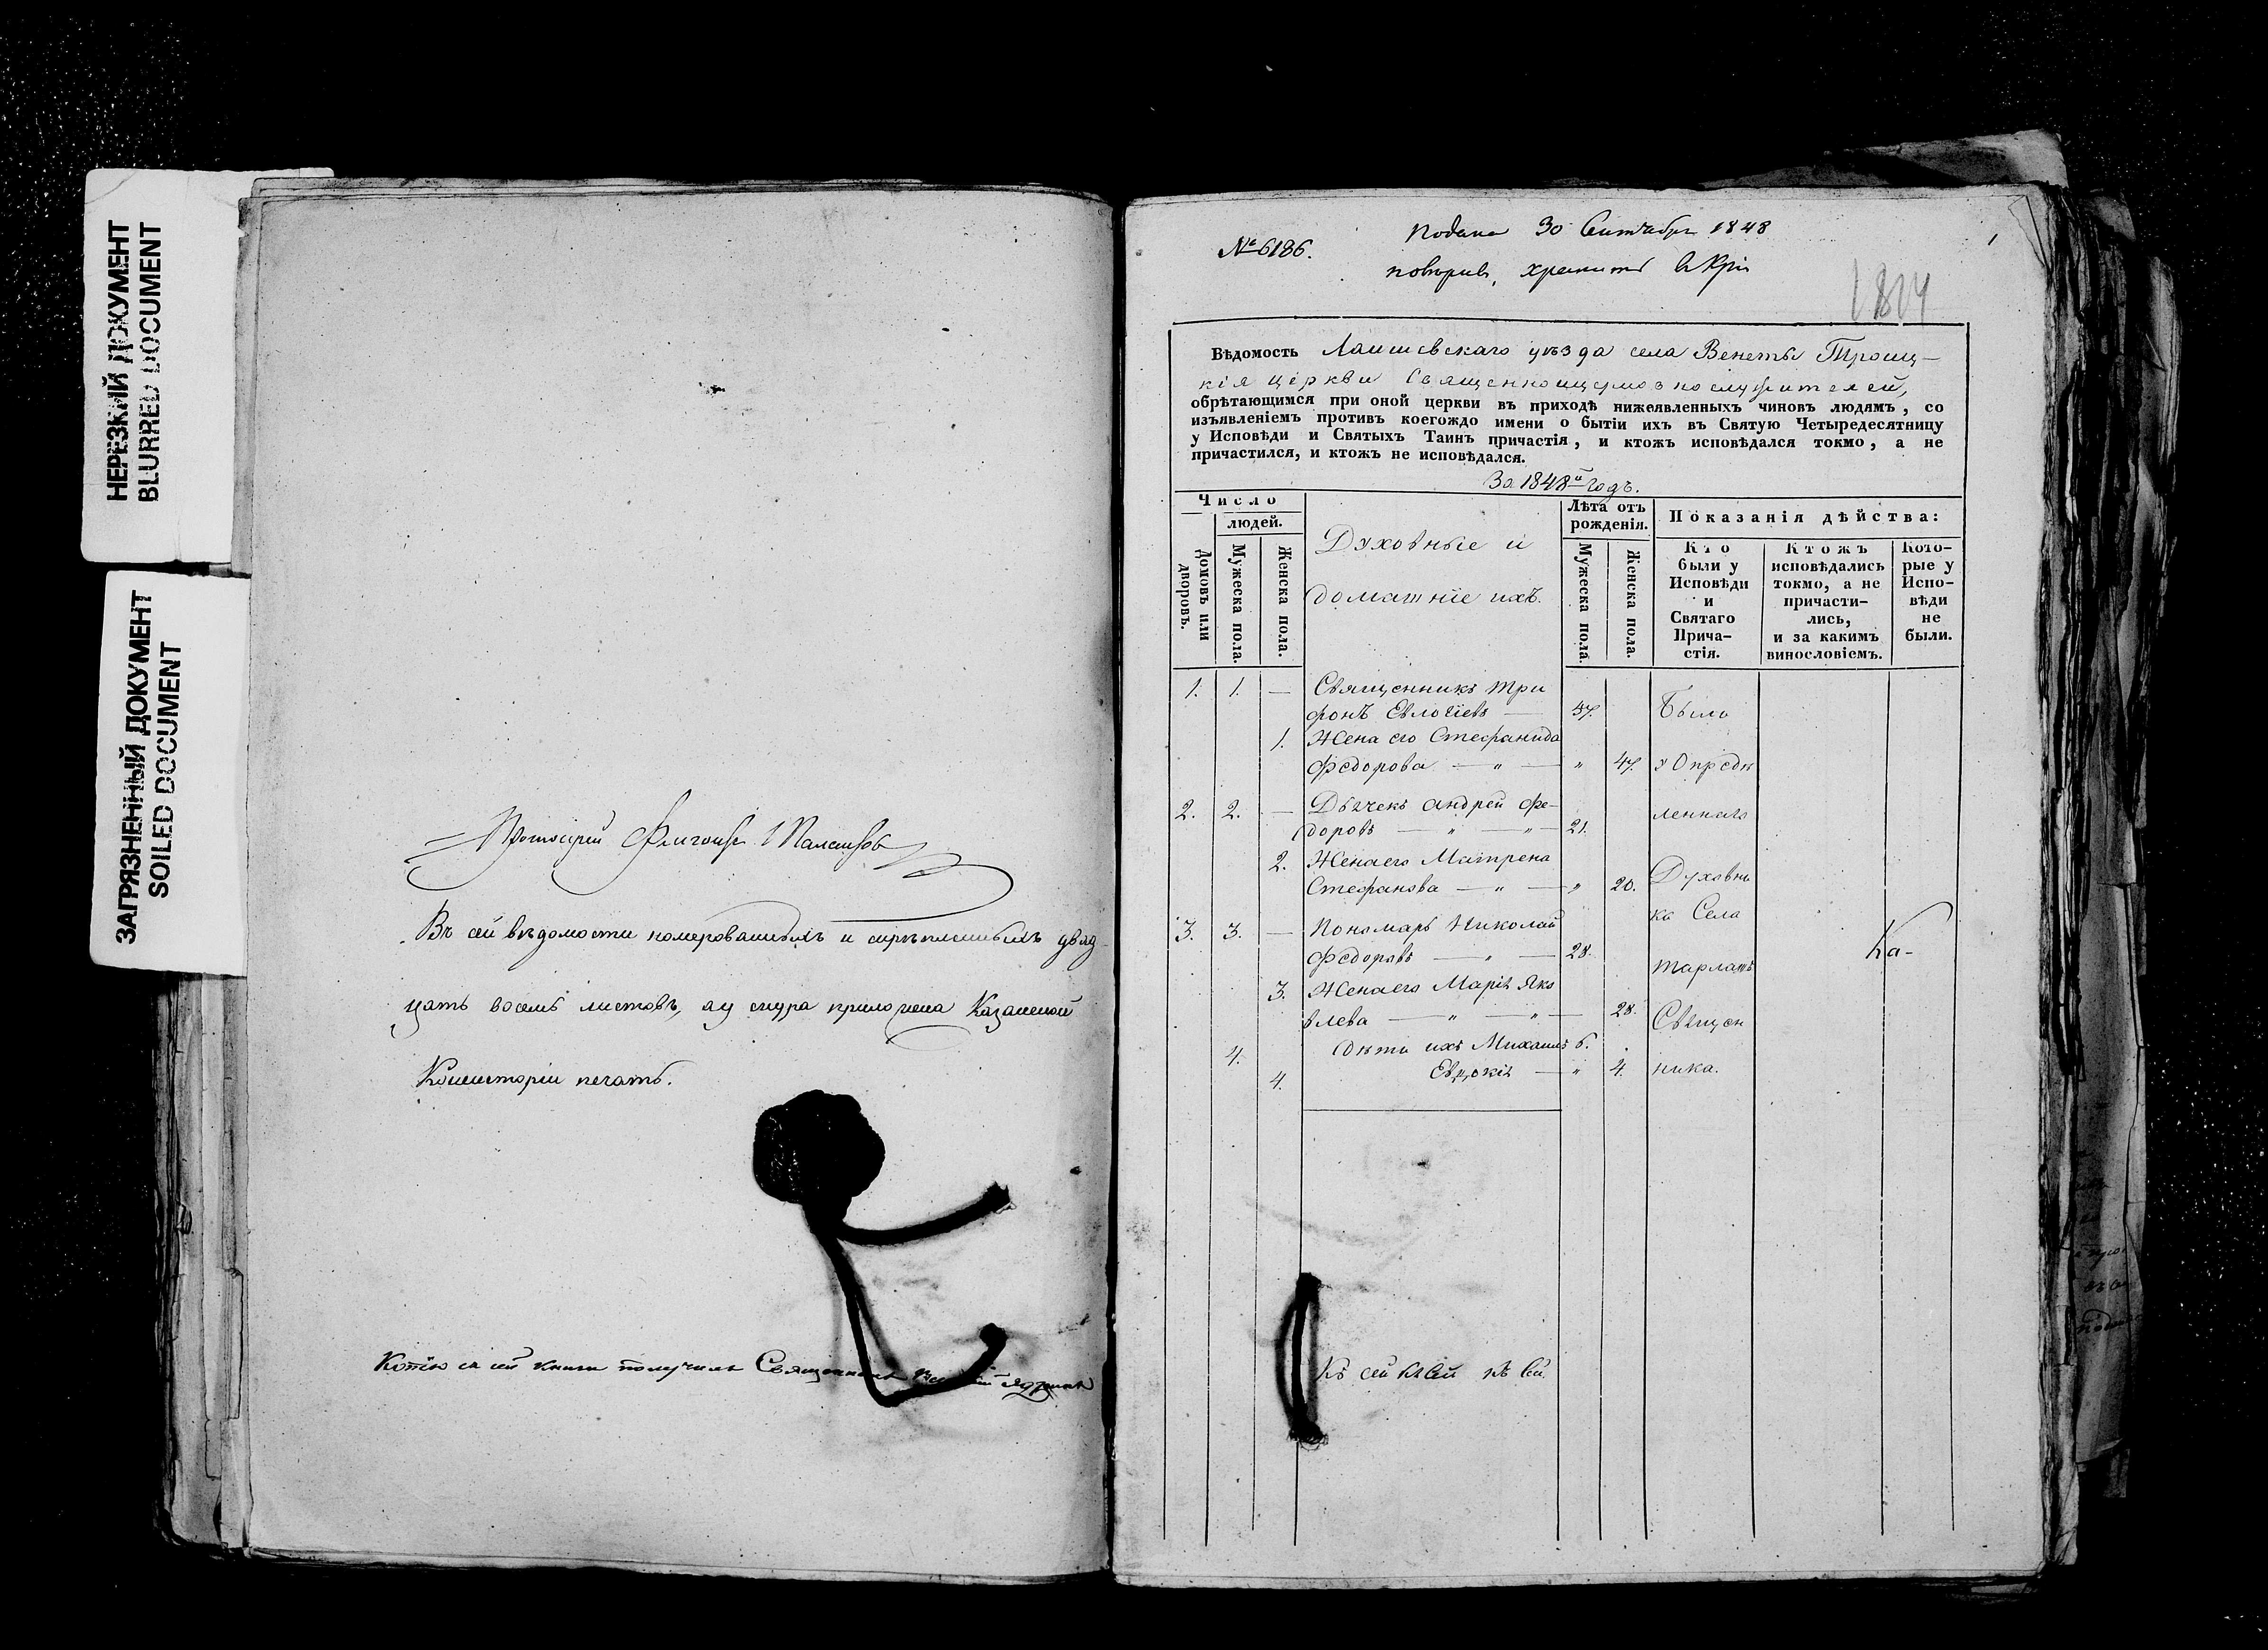 НЕРЕЗКИЙ ДОКУМЕНТ
BLURRED DOCUMENT
ЗАГРЯЗНЕННЫЙ ДОКУМЕНТ
SOILED DOCUMENT
Протоіерей
Въ сей вѣдомости номерованныхъ и скрѣпленныхъ двад-
цать восемь листовъ, а у снура приложена Казанской
Консисторіи печать.
Копію съ сей книги получилъ Священникъ
№ 6186.
Подана 30 Сентября 1848
повѣривъ, хранить
1
Вѣдомость Лаишевскаго уѣзда села Венеты Троиц-
кія церкви Священноцерковнослужителей,
обрѣтающимся при оной церкви въ приходѣ нижеявленныхъ чиновъ людямъ, со
изъявленіемъ противъ коегождо имени о бытіи ихъ въ Святую Четыредесятницу
у Исповѣди и Святыхъ Таинъ причастія, и ктожъ исповѣдался токмо, а не
причастился, и ктожъ не исповѣдался.
За 1848й годъ.
Число
людей.
Домовъ или дворовъ.
Мужеска пола.
Женска пола.
Духовные и
домашніе ихъ.
Лѣта отъ
рожденія.
Мужеска пола.
Женска пола.
Показанія дѣйства:
Кто
были у
Исповѣди
и
Святаго
Прича-
стія.
Ктожъ
исповѣдались
токмо, а не
причасти-
лись,
и за какимъ
винословіемъ.
Кото-
рые у
Испо-
вѣди
не
были.
1. 1. — Священникъ Три
фонъ Евлогіевъ — 47. Былъ
1. Жена его Стефанида
Федорова — „ — „ 47. у Опредѣ
2. 2. — Дьячекъ Андрей Фе-
доровъ — „ — „ — 21. леннаго
2. Жена его Матрена
Стефанова — „ — „ 20. Духовни
3. 3. — Пономарь Николай ка Села
Федоровъ — „ — 28. Тарлашъ Ка-
3. Жена его Марія Яко
влева — „ — „ — 28. Священ
4. Дѣти ихъ Михаилъ 6.
4. Евдокія — „ 4. ника.
Къ сей